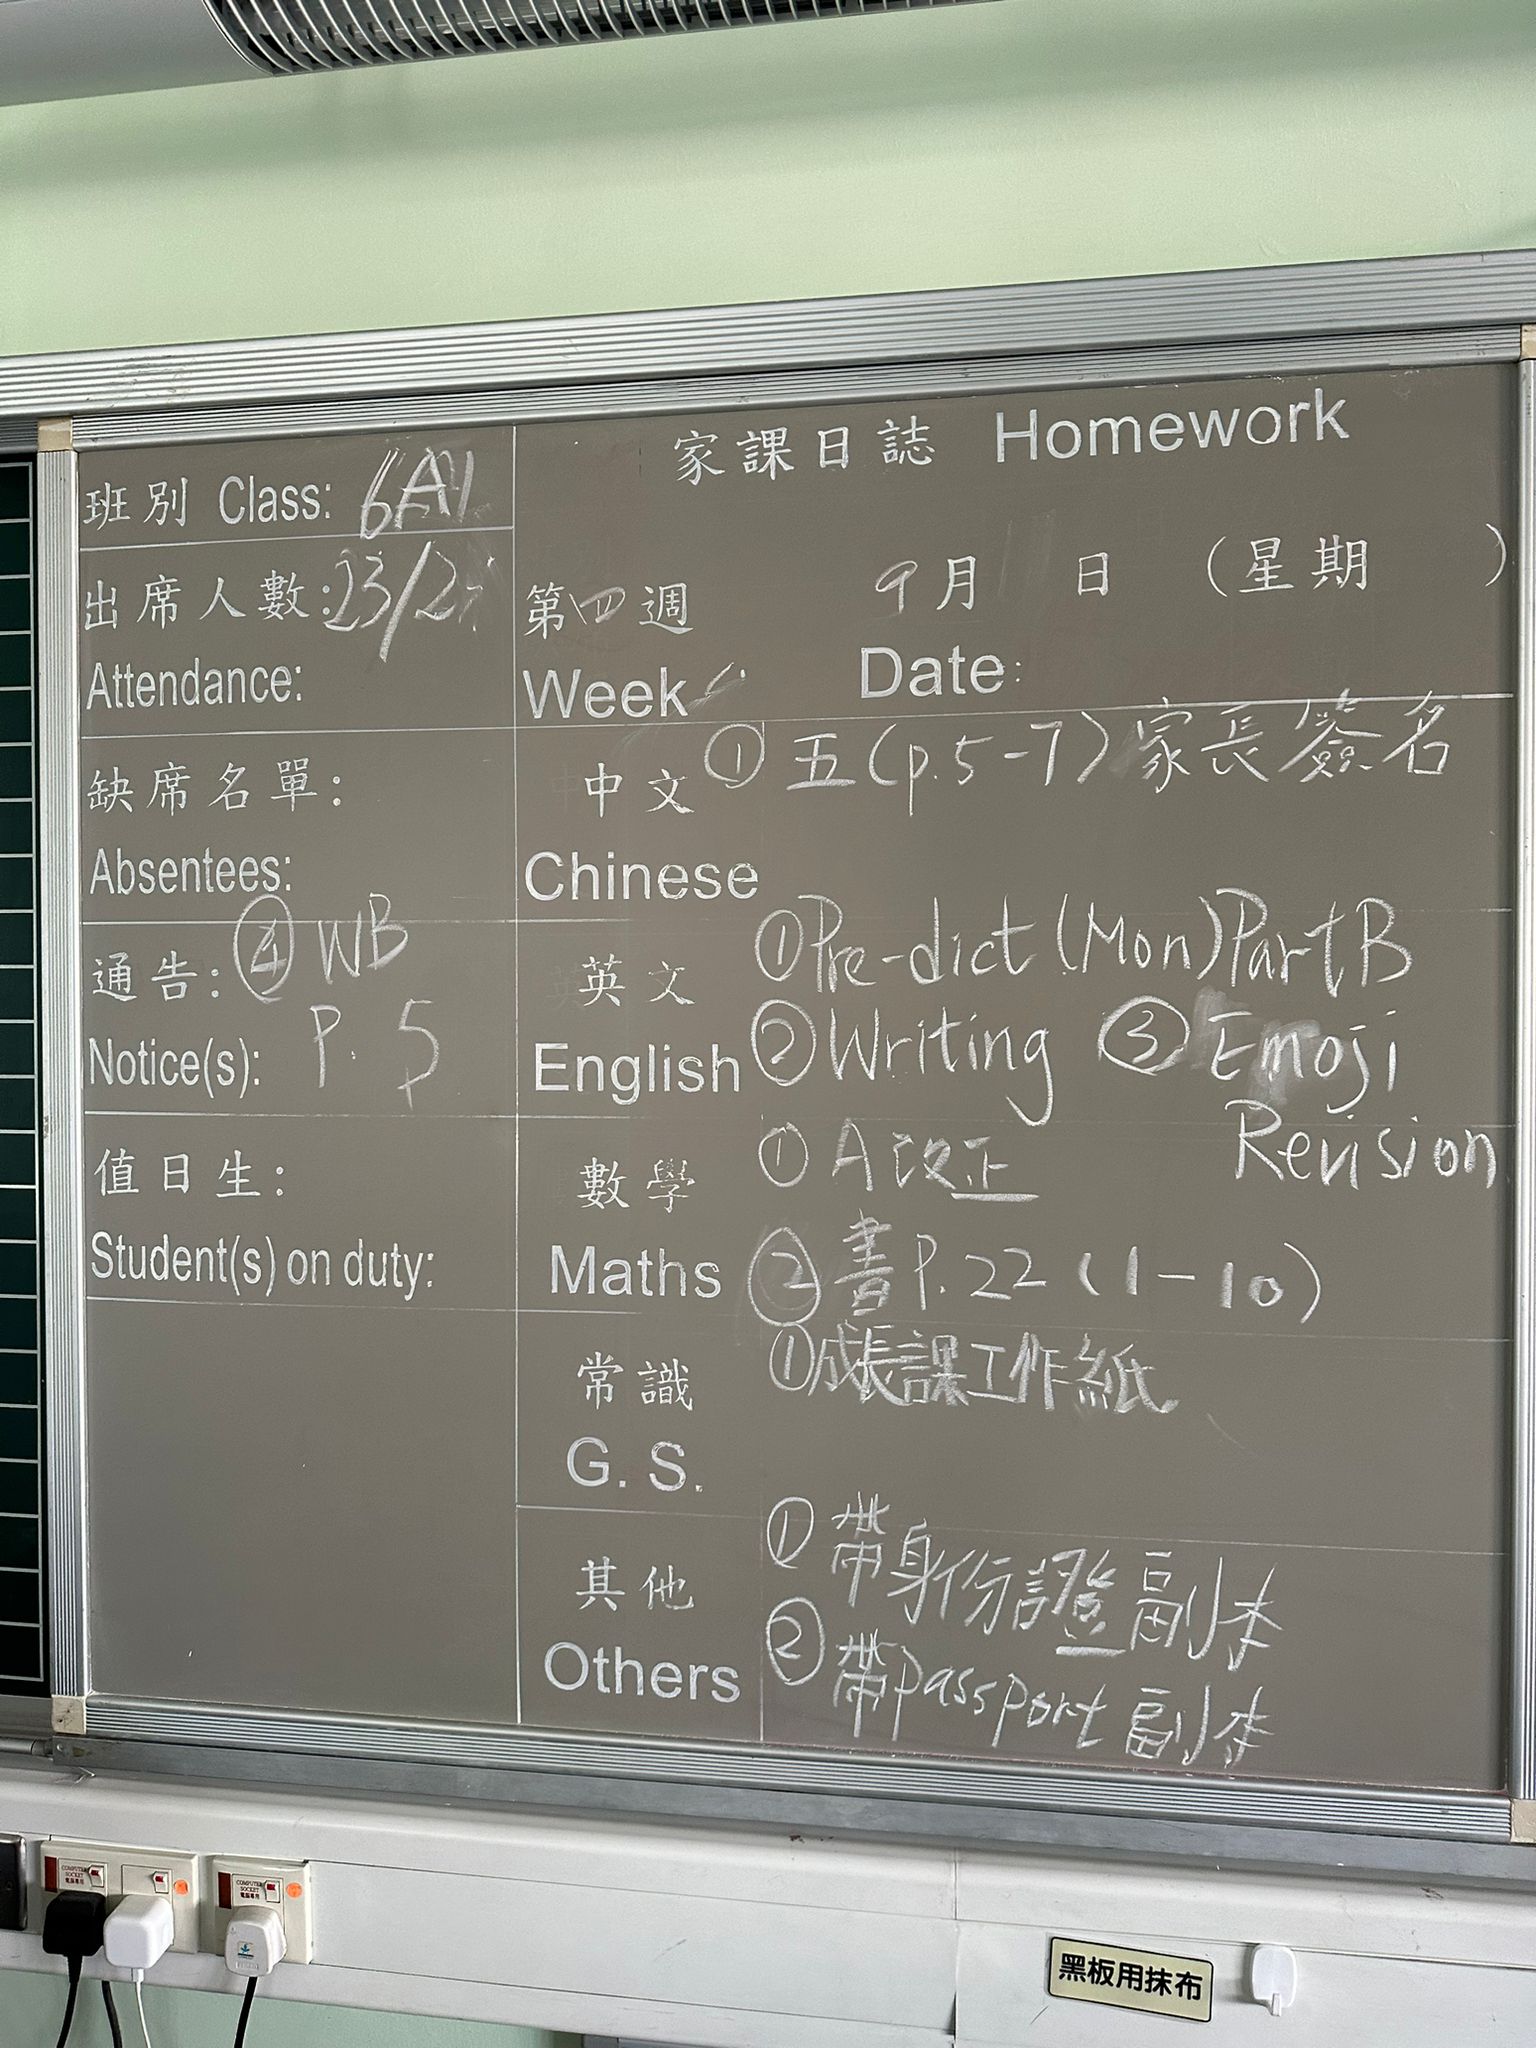 家課日誌 Homework
班別 Class: 6A1
出席人數: 23/2
Attendance:
缺席名單:
Absentees:
通告: ④ WB
Notice(s): P. 5
值日生:
Student(s) on duty:
第四週 9月 日 (星期 )
Week Date:
中文 ① 五(p.5-7)家長簽名
Chinese
英文 ①Pre-dict (Mon) Part B
English ②Writing ③Emoji
Revision
數學 ① A改正
Maths ②書P.22 (1-10)
常識 ①成長課工作紙
G. S.
其他 ① 帶身份證副本
Others ② 帶passport副本
COMPUTER SOCKET 電腦專用
COMPUTER SOCKET 電腦專用
黑板用抹布